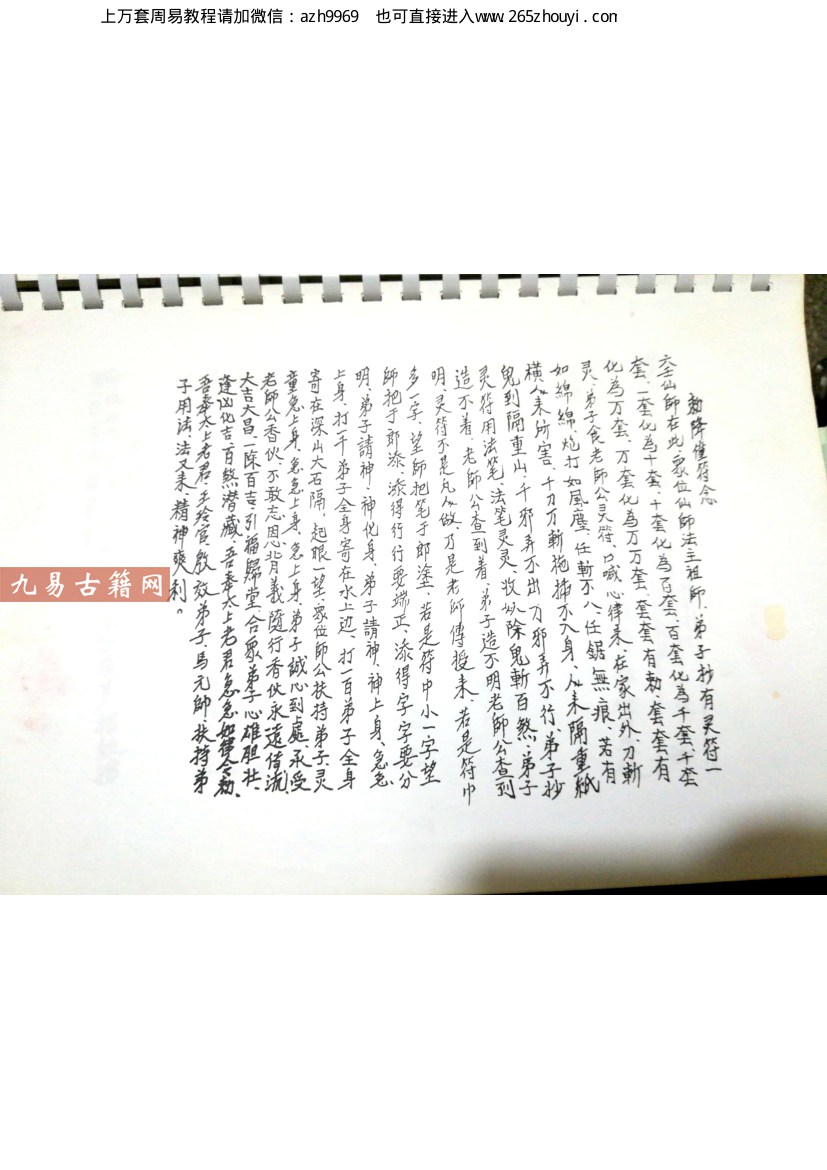 上万套周易教程请加微信：azh9969　也可直接进入www.265zhouyi.com
勅降僊符念
六壬仙師在此、眾位仙師法主祖師、弟子抄有灵符一
套、一套化為十套、十套化為百套、百套化為千套、千套
化為万套、万套化為万万套、套套有勅、套套有
灵、弟子食老師公灵符、口喊心律来、在家出外、刀斬
如綿綿、炮打如風塵、任斬不入、任鋸無痕、若有
橫人来所害、千刀万斬拖捕不入身、人来隔重紙
鬼到隔重山、千邪弄不出、万邪弄不行、弟子抄
灵符用法笔、法笔灵灵、收妖除鬼斬百煞、弟子
造不着、老師公查到着、弟子造不明老師公查到
明、灵符不是凡人做、乃是老師傳授来、若是符中
多一字、望師把笔于郎塗、若是符中小一字望
師把于郎添、添得行行要端正、添得字字要分
明、弟子請神、神化身、弟子請神、神上身、急急
上身、打一千弟子全身寄在水上边、打一百弟子全身
寄在深山大石隔、起眼一望、眾位師公扶持弟子、灵
童急上身、急急上身、急上身、弟子誠心到處、承受
老師公香伙、不敢忘恩背義隨行香伙永遠传流、
大吉大昌、一陈百吉、引福歸堂、合眾弟子心雄胆壮、
逢凶化吉、百煞潜藏、吾奉太上老君急急如律令勅、
吾奉太上老君、王玲官啟教弟子、馬元帥扶持弟
子用法、法又来、精神爽利。
九易古籍网